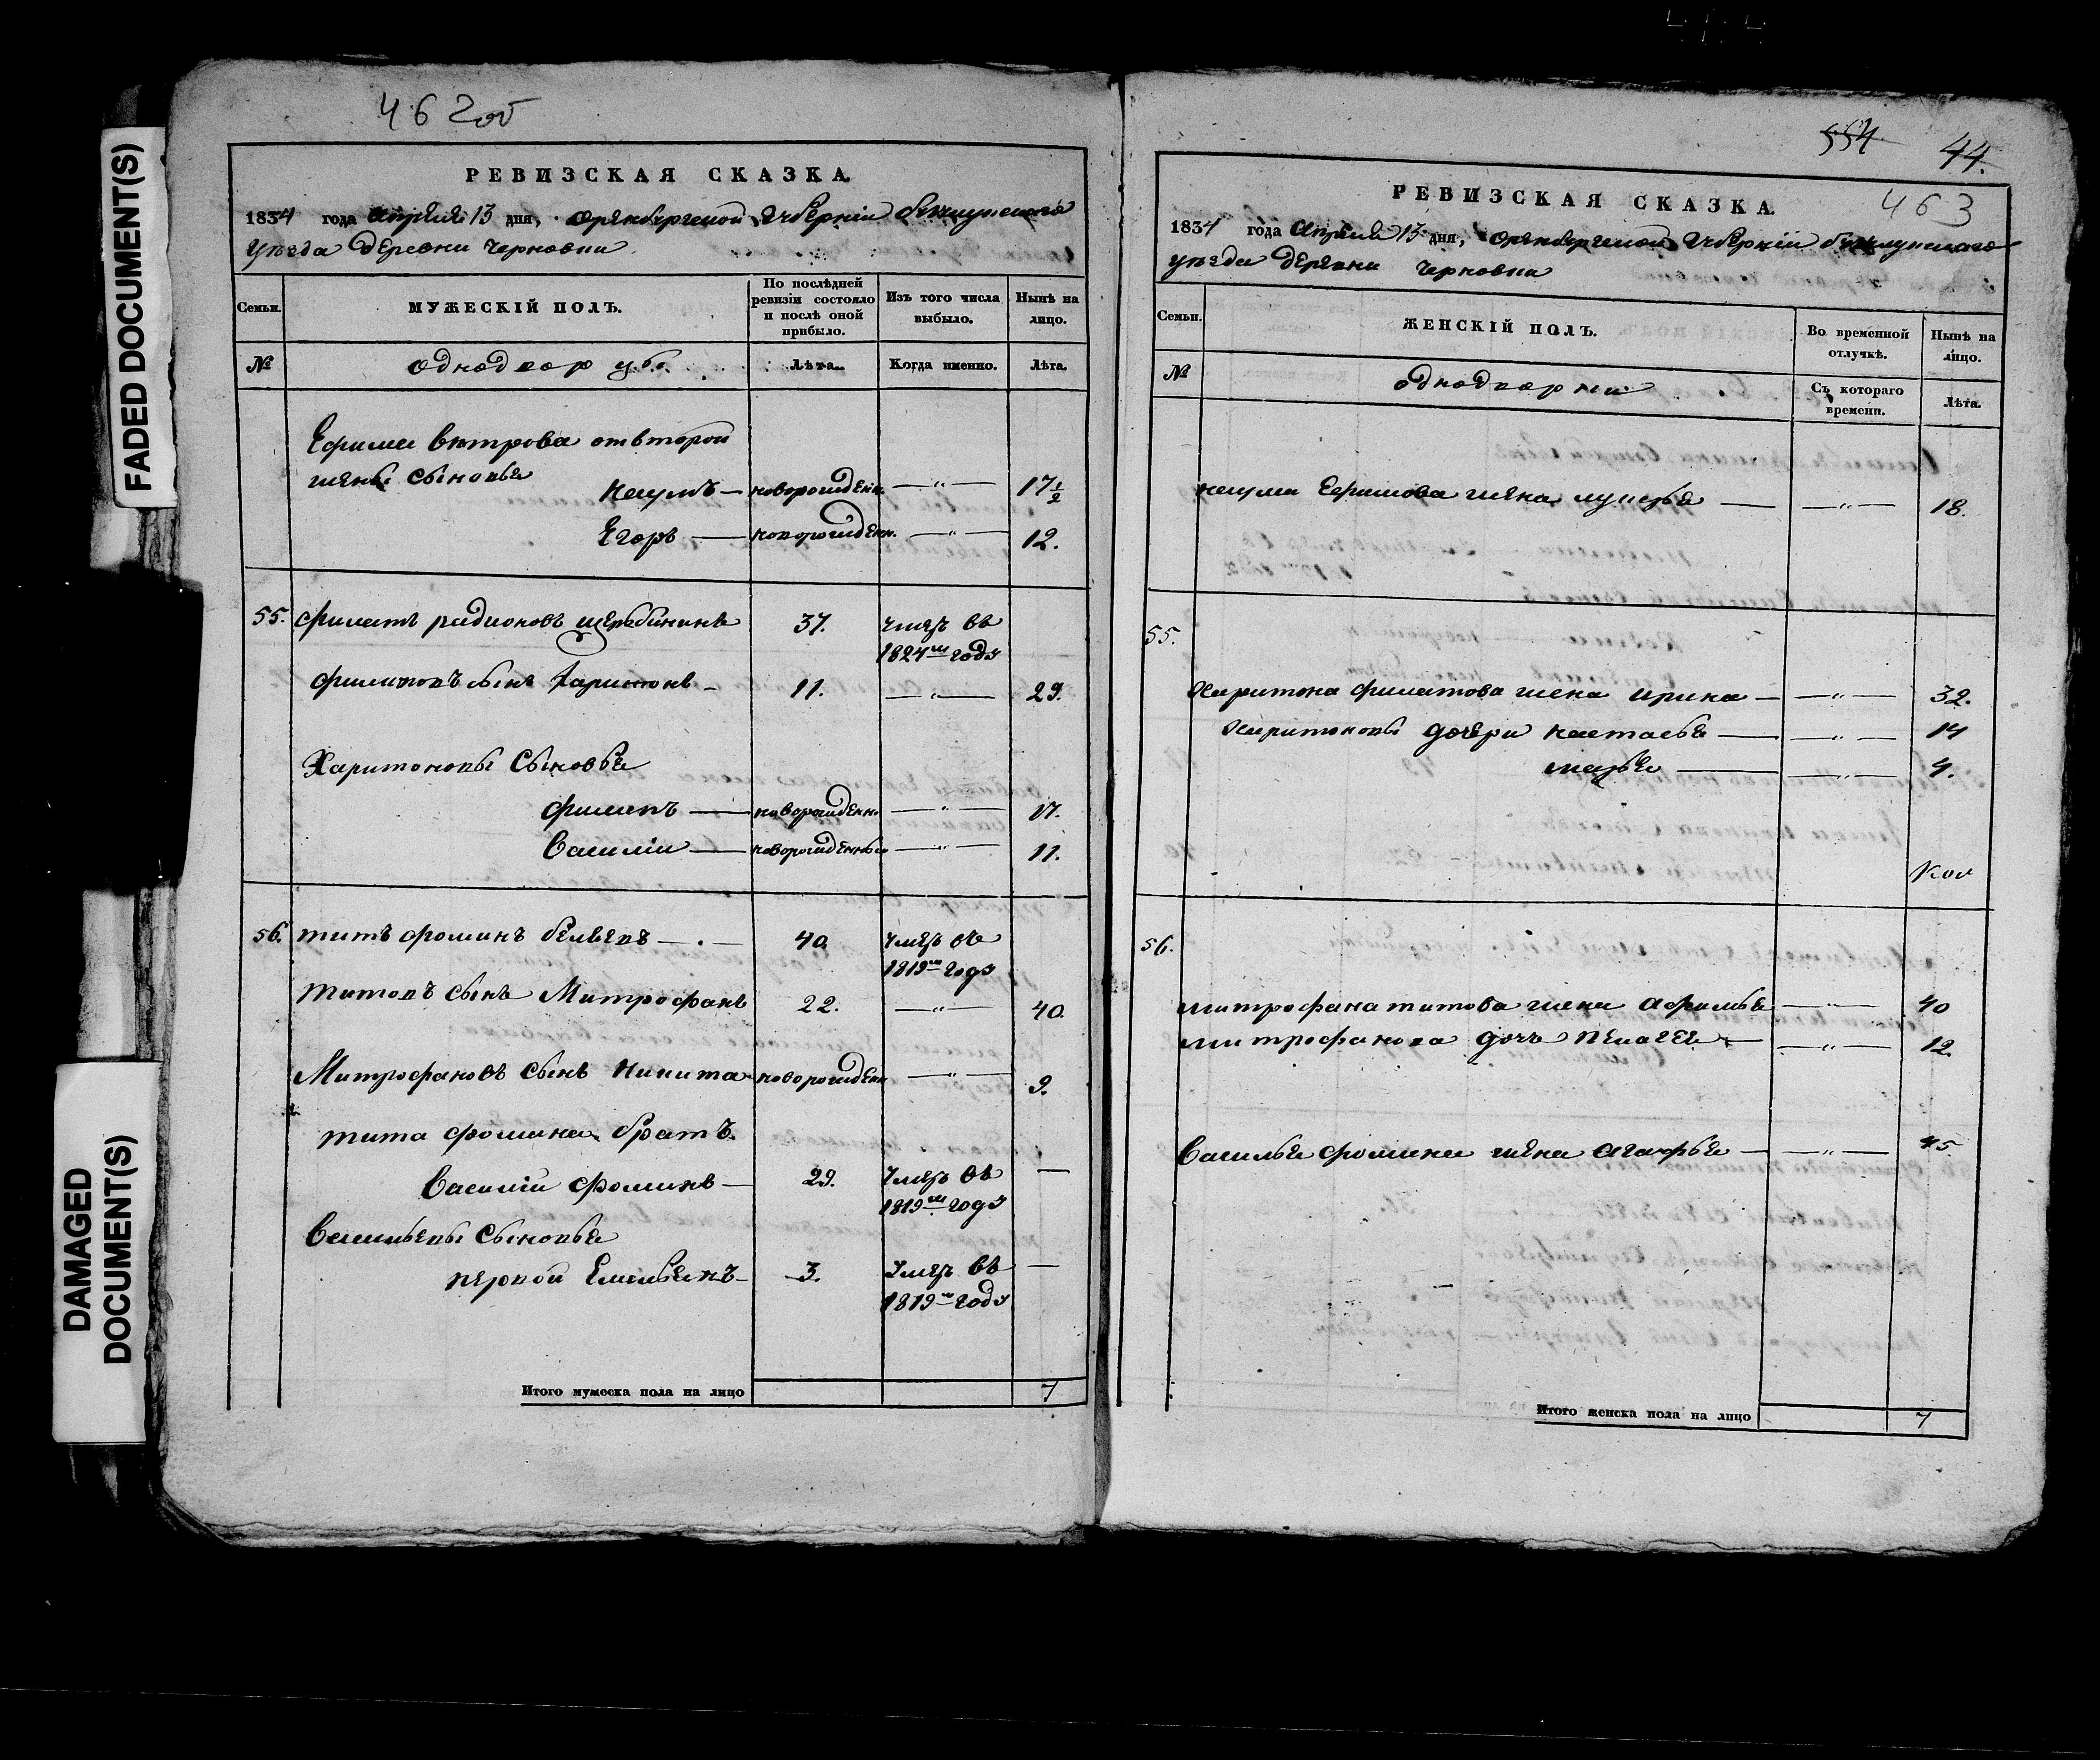 FADED DOCUMENT(S)
DAMAGED
DOCUMENT(S)
462об
РЕВИЗСКАЯ СКАЗКА.
1834 года Апреля 13 дня, Оренбургской Губернiи
уезда деревни Черновки
Семьи. МУЖЕСКIЙ ПОЛЪ. По послѣдней ревизiи состояло и послѣ оной прибыло. Изъ того числа выбыло. Нынѣ на лицо.
№ Лѣта. Когда именно. Лѣта.
Ефима Ветрова отвторой
жены сыновья
Наумъ — новорожден. — " — 17 1/2
Егоръ — новорожден. — " — 12.
55. Филатъ радионовъ щербининъ 37. умеръ въ
1824м году
Филатовъ сынъ Харитонъ — 11. — " — 29.
Харитоновы Сыновья
Филипъ — новорожден. — " — 17.
Василiй — новорожденны — " — 11.
56. титъ фоминъ беляевъ — . — 40 умеръ въ
1819м году
титовъ сынъ Митрофанъ 22. — " — 40.
Митрофановъ сынъ Никита новорожден — " — 9.
тита фомина братъ.
Василiй фоминъ — 29. Умеръ въ —
1819м году
Васильевы Сыновья
первой Емельянъ — 3. Умеръ въ —
1819м году
Итого мужеска пола на лицо 7
554 44.
463
РЕВИЗСКАЯ СКАЗКА.
1834 года Апреля 13 дня, Оренбургской Губернiи
уезда деревни Черновки
Семьи. ЖЕНСКIЙ ПОЛЪ. Во временной отлучкѣ. Нынѣ на лицо.
№ однодворки Съ котораго времени. Лѣта.
наума Ефимова жена лукерья — — " — 18.
55.
Харитона филатова жена ирина — — " — 32.
Харитоновы дочери настасья — — " — 14
марья — — " — 4.
56.
митрофана титова жена афимья — " — 40
митрофанова дочь пелагея — — " — 12.
Василья фомина жена агафья — — " — 45
Итого женска пола на лицо 7